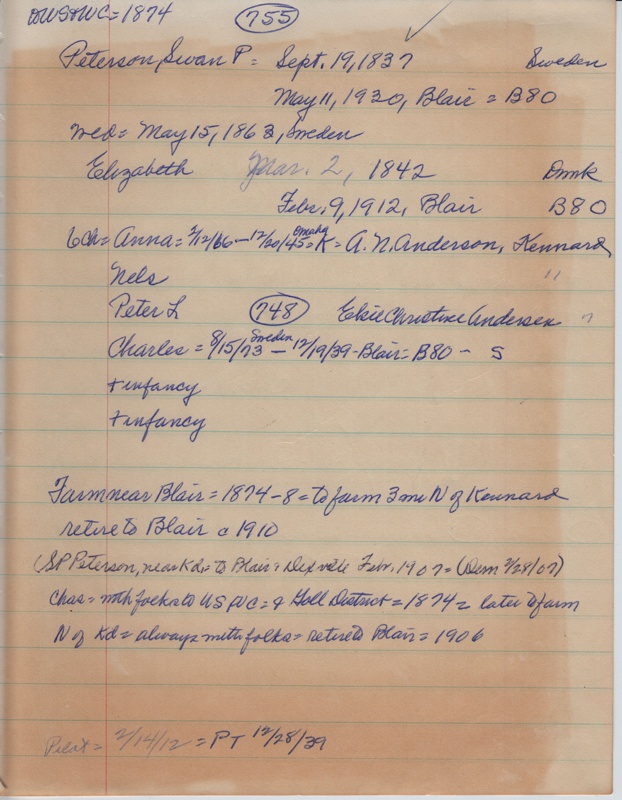 DWS&WC = 1874 755
Peterson, Swan P = Sept. 19, 1837 Sweden
May 11, 1920, Blair = B80
Wed = May 15, 1863, Sweden
Elizabeth Mar. 2, 1842 Dmk
Febr. 9, 1912, Blair B80
6ch = Anna = 2/12/66 - 12/20/45 Omaha = K = A. N. Anderson, Kennard
Nels "
Peter L 748 Elsie Christine Andersen "
Charles = 8/15/73 Sweden - 12/19/39 - Blair = B80 - S
+ infancy
+ infancy
Farm near Blair = 1874-8 = to farm 3 mi N of Kennard
retire to Blair c 1910
(SP Peterson, near Kd, = to Blair & Febr. 1907 = (Dem 2/28/07)
Chas = with folks to US &WC = & Goll District = 1874 = later to farm
N of Kd = always with folks = retire to Blair = 1906
Pilot = 2/14/12 = PT 12/28/39